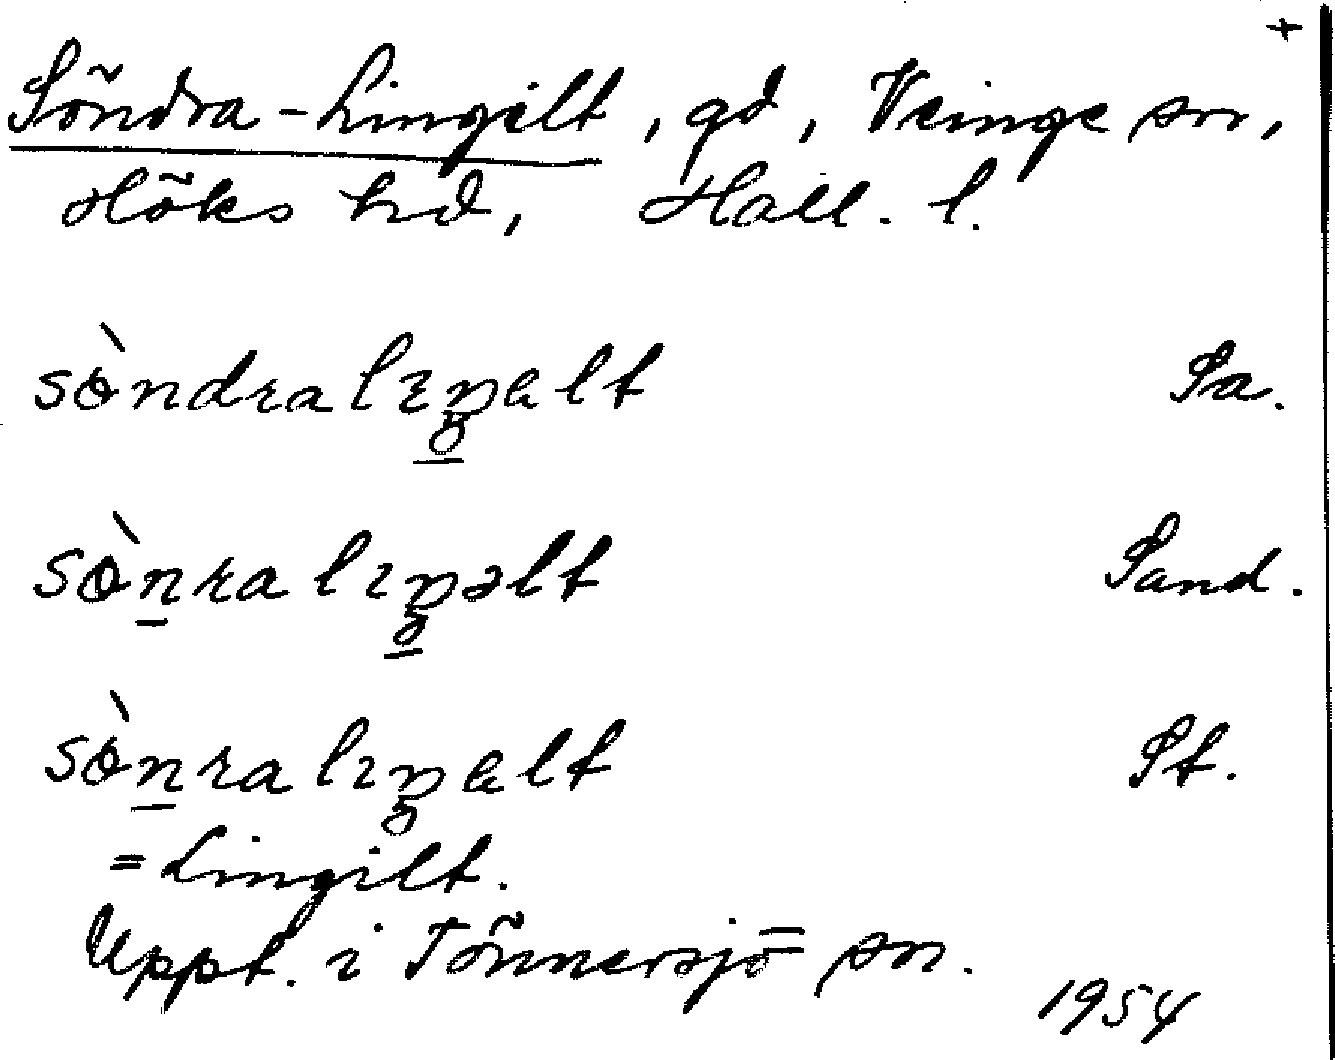 +
Söndra-Lingilt, gd, Veinge sn,
Höks hd, Hall. l.
sòndralıŋelt Sa.
sònralıŋəlt Sand.
sònralıŋelt St.
= Lingilt.
Uppt. i Tönnersjö sn.
1954